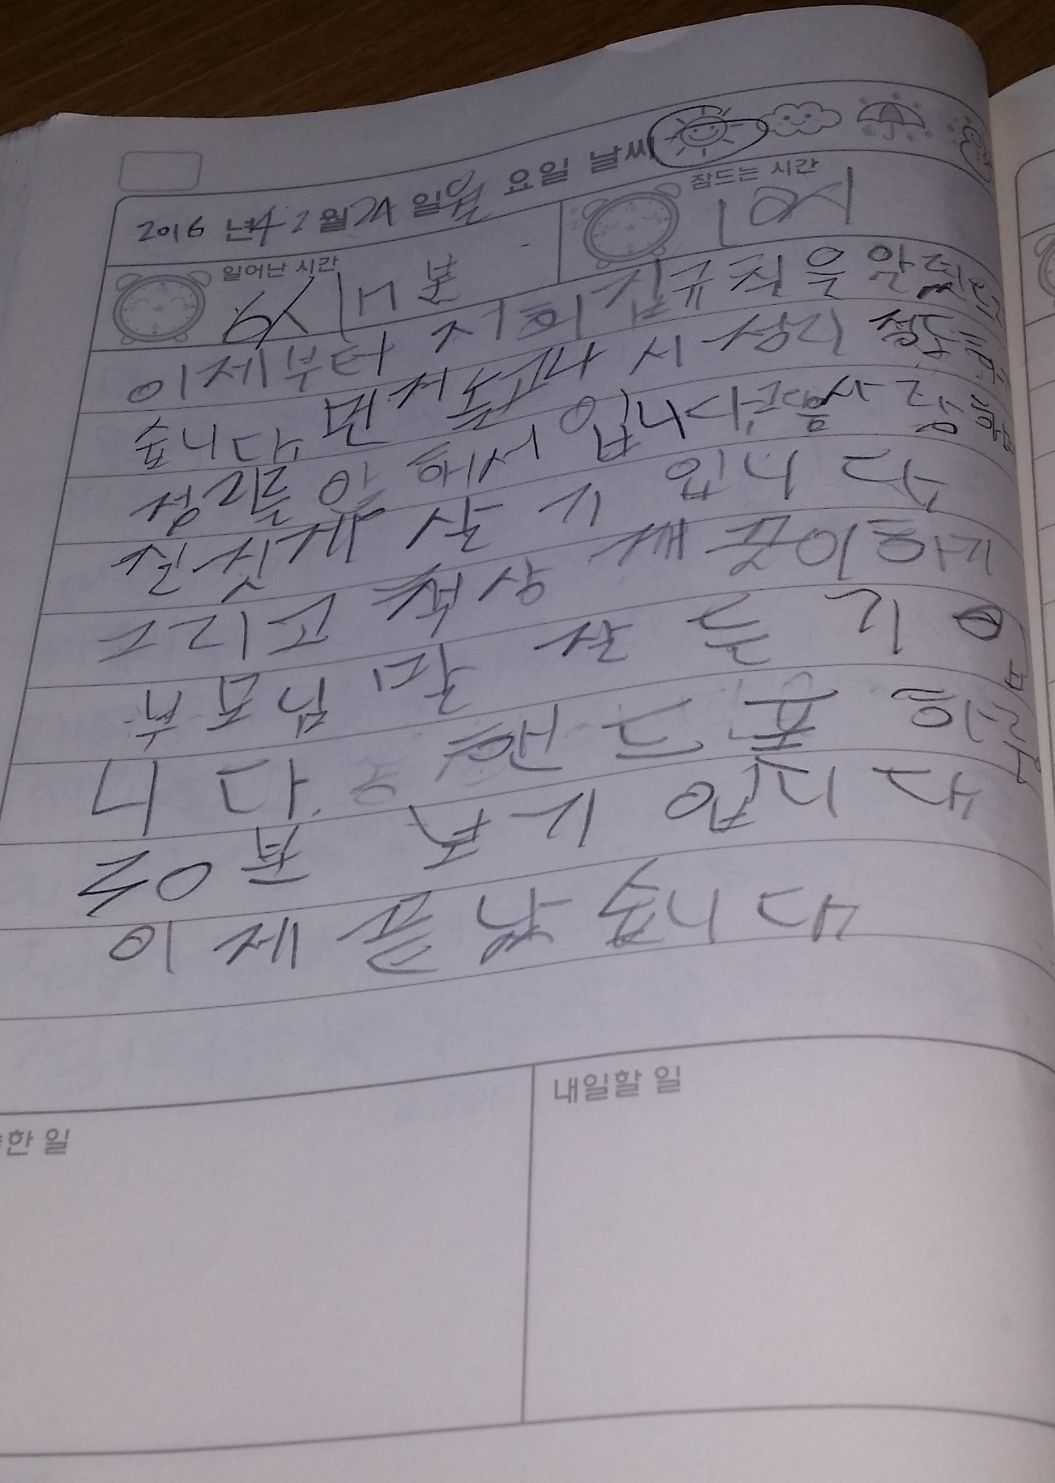 2016 년 2월 24 일 월 요일 날씨
일어난 시간 잠드는 시간
6시 분 10시
이제부터 저희 집규칙을
습니다 먼저 놀고나 시 정리 정돈
정리를 않 해서 입니다 사람
실짓게 살 기 입니 다
그리고 책상 깨 끗이 하기
부모님 말 잘 듣 기
니 다. 핸드폰 하루
20분 보기 입니 다
이제 끝났습니다
한 일
내일할 일